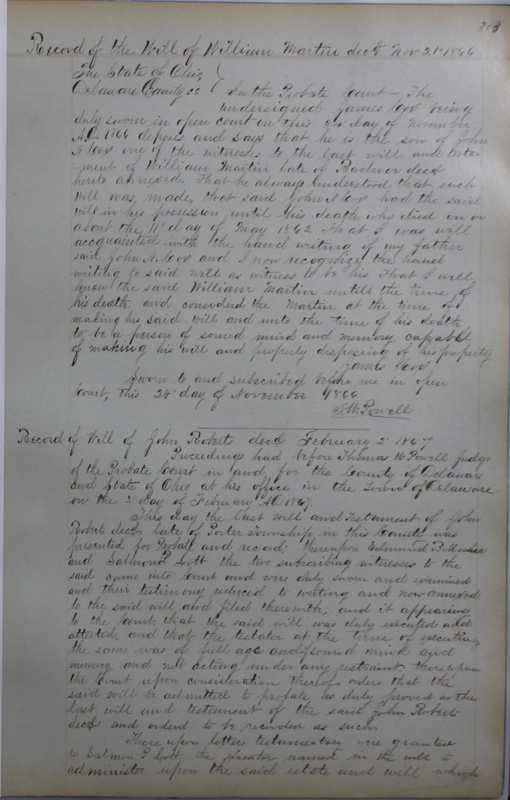 303
Record of the Will of William Martin decd Nov 24 1866
The State of Ohio
Delaware County ss In the Probate Court - The
undersigned James Cox being
duly sworn in open court on this 24 day of November
A.D. 1866 deposes and says that he is the son of John
N Cox one of the witnesses to the last will and testa-
-ment of William Martin late of Radnor decd
hereto annexed. That he always understood that such
Will was made, that said John N. Cox had the said
will in his possession until his death who died on or
about the 11th day of May 1862 That I was well
acquainted with the hand writing of my father
said John N. Cox and I now recognize the hand
writing to said will as witness to be his That I well
knew the said William Martin untill the time of
his death and considerd the Martin at the time of
making his said Will and unto the time of his death
to be a person of sound mind and memory capable
of making his will and properly disposing of his property
James Cox
Sworn to and subscribed before me in open
Court, this 24 day of November 1866
T.W. Powell
Record of Will of John Roberts decd February 2 1867
Proceedings had before Thomas W Powell Judge
of the Probate Court in and for the County of Delaware
and State of Ohio at his office in the Town of Delaware
on the 2 day of February AD 1867.
This day the last will and Testament of John
Robert decd late of Porter Township in this County was
presented for Probate and record; thereupon Edmund B
and Salmond Lott the two subscribing witnesses to the
said came into Court and were duly sworn and examined
and their testimony reduced to writing and now annexed
to the said will and filed therewith, and it appearing
to the Court, that the said will was duly executed and
attested, and that the testator at the time of executing
the same was of full age and sound mind and
memory and not acting under any restraint, thereupon
the Court upon consideration thereof orders that the
said will be admitted to probate as duly proved as the
last will and testament of the said John Roberts
decd and orderd to be recorded as such.
There upon letters testamentary are granted
to Salmon P Lott the executor named in the will to
administer upon the said estate and will which